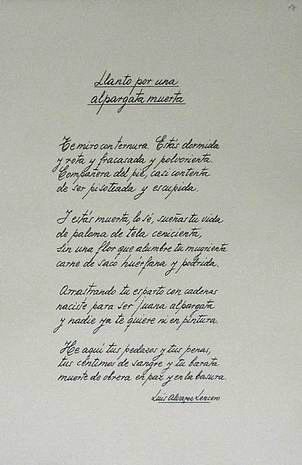 Llanto por una
alpargata muerta
Te miro con ternura. Estás dormida
y rota y fracasada y polvorienta.
Compañera del pie, casi contenta
de ser pisoteada y escupida.
Y estás muerta, lo sé, sueñas tu vida
de paloma de tela cenicienta,
sin una flor que alumbre tu mugrienta
carne de saco huérfana y podrida.
Arrastrando tu esparto con cadenas
naciste para ser Juana alpargata
y nadie ya te quiere ni en pintura.
He aquí tus pedazos y tus penas,
tus céntimos de sangre y tu barata
muerte de obrera en paz y en la basura.
Luis Alvarez Lencero